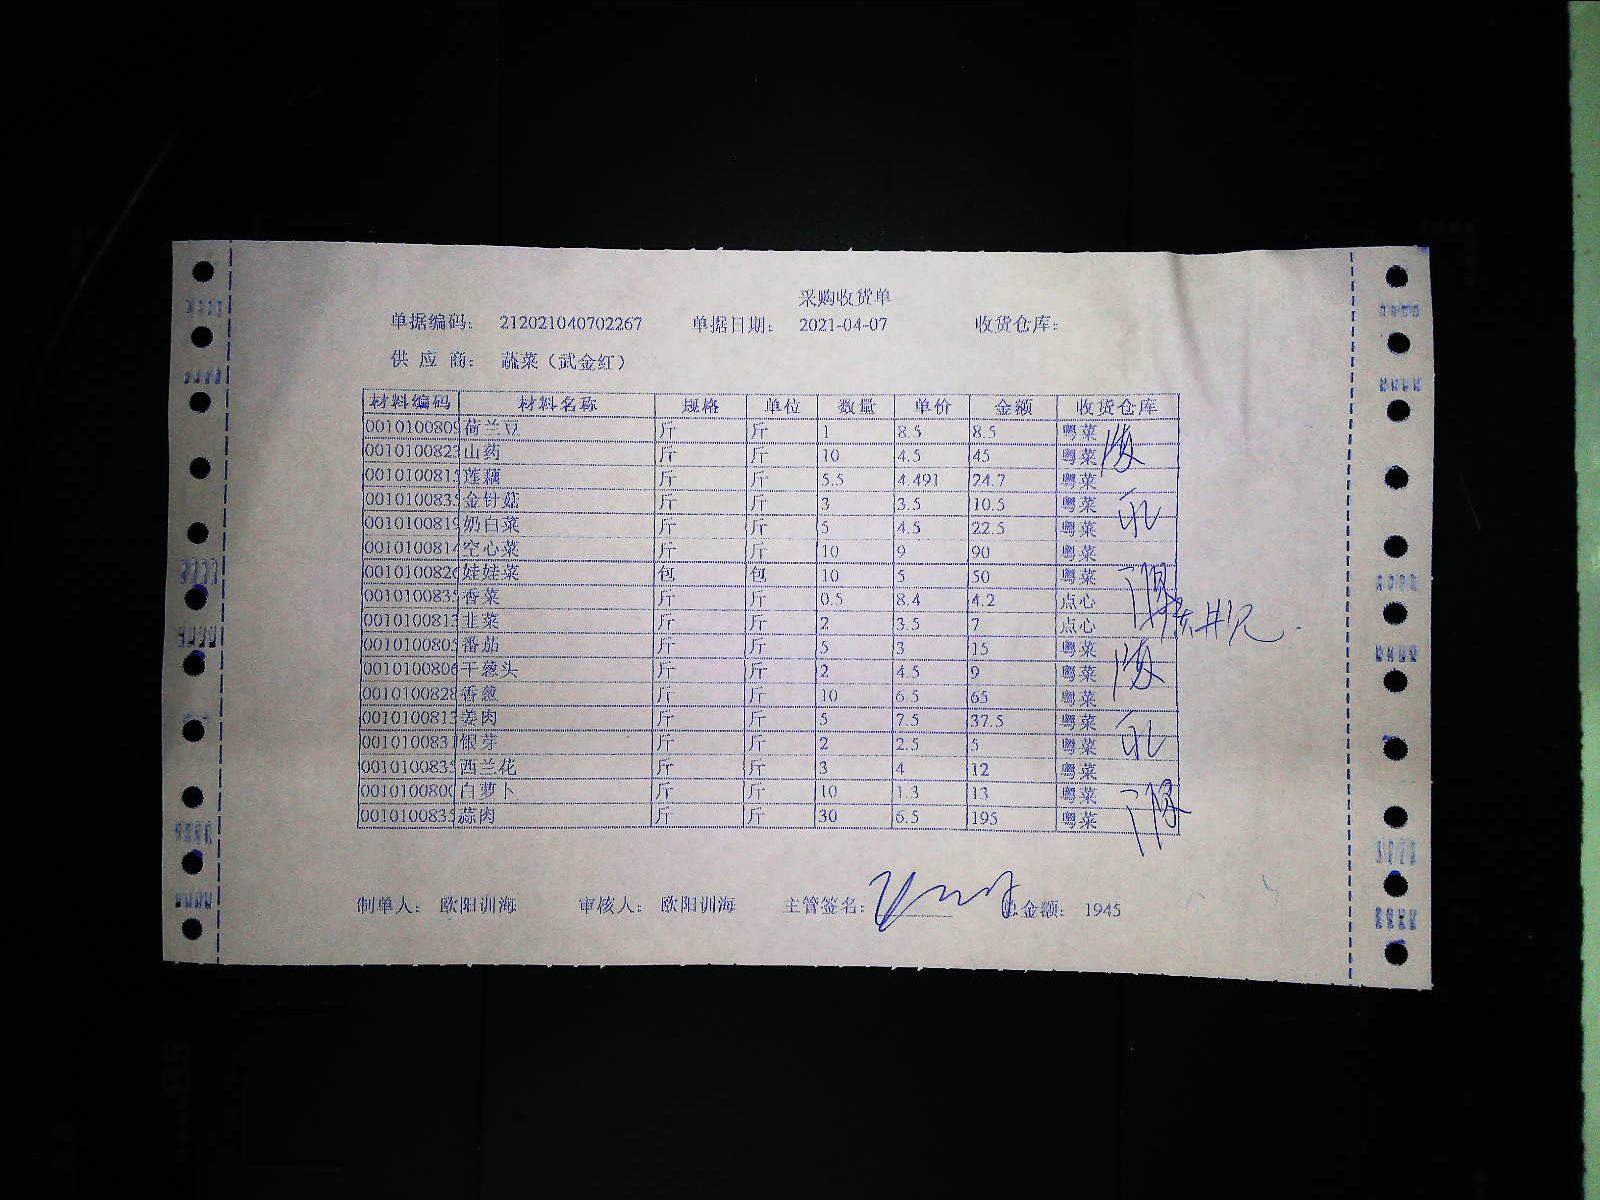 采购收货单
单据编码: 212021040702267 单据日期: 2021-04-07 收货仓库:
供 应 商: 蔬菜（武金红）
材料编码 材料名称 规格 单位 数量 单价 金额 收货仓库
0010100809 荷兰豆 斤 斤 1 8.5 8.5 粤菜
0010100823 山药 斤 斤 10 4.5 45 粤菜
001010081 莲藕 斤 斤 5.5 4.491 24.7 粤菜
001010083 金针菇 斤 斤 3 3.5 10.5 粤菜
0010100819 奶白菜 斤 斤 5 4.5 22.5 粤菜
0010100814 空心菜 斤 斤 10 9 90 粤菜
0010100826 娃娃菜 包 包 10 5 50 粤菜
001010083 香菜 斤 斤 0.5 8.4 4.2 点心
0010100813 韭菜 斤 斤 2 3.5 7 点心
001010080 番茄 斤 斤 5 3 15 粤菜
0010100806 干葱头 斤 斤 2 4.5 9 粤菜
0010100828 香葱 斤 斤 10 6.5 65 粤菜
001010081 姜肉 斤 斤 5 7.5 37.5 粤菜
0010100831 银芽 斤 斤 2 2.5 5 粤菜
001010083 西兰花 斤 斤 3 4 12 粤菜
0010100800 白萝卜 斤 斤 10 1.3 13 粤菜
001010083 蒜肉 斤 斤 30 6.5 195 粤菜
制单人: 欧阳训海 审核人: 欧阳训海 主管签名: 总金额: 1945